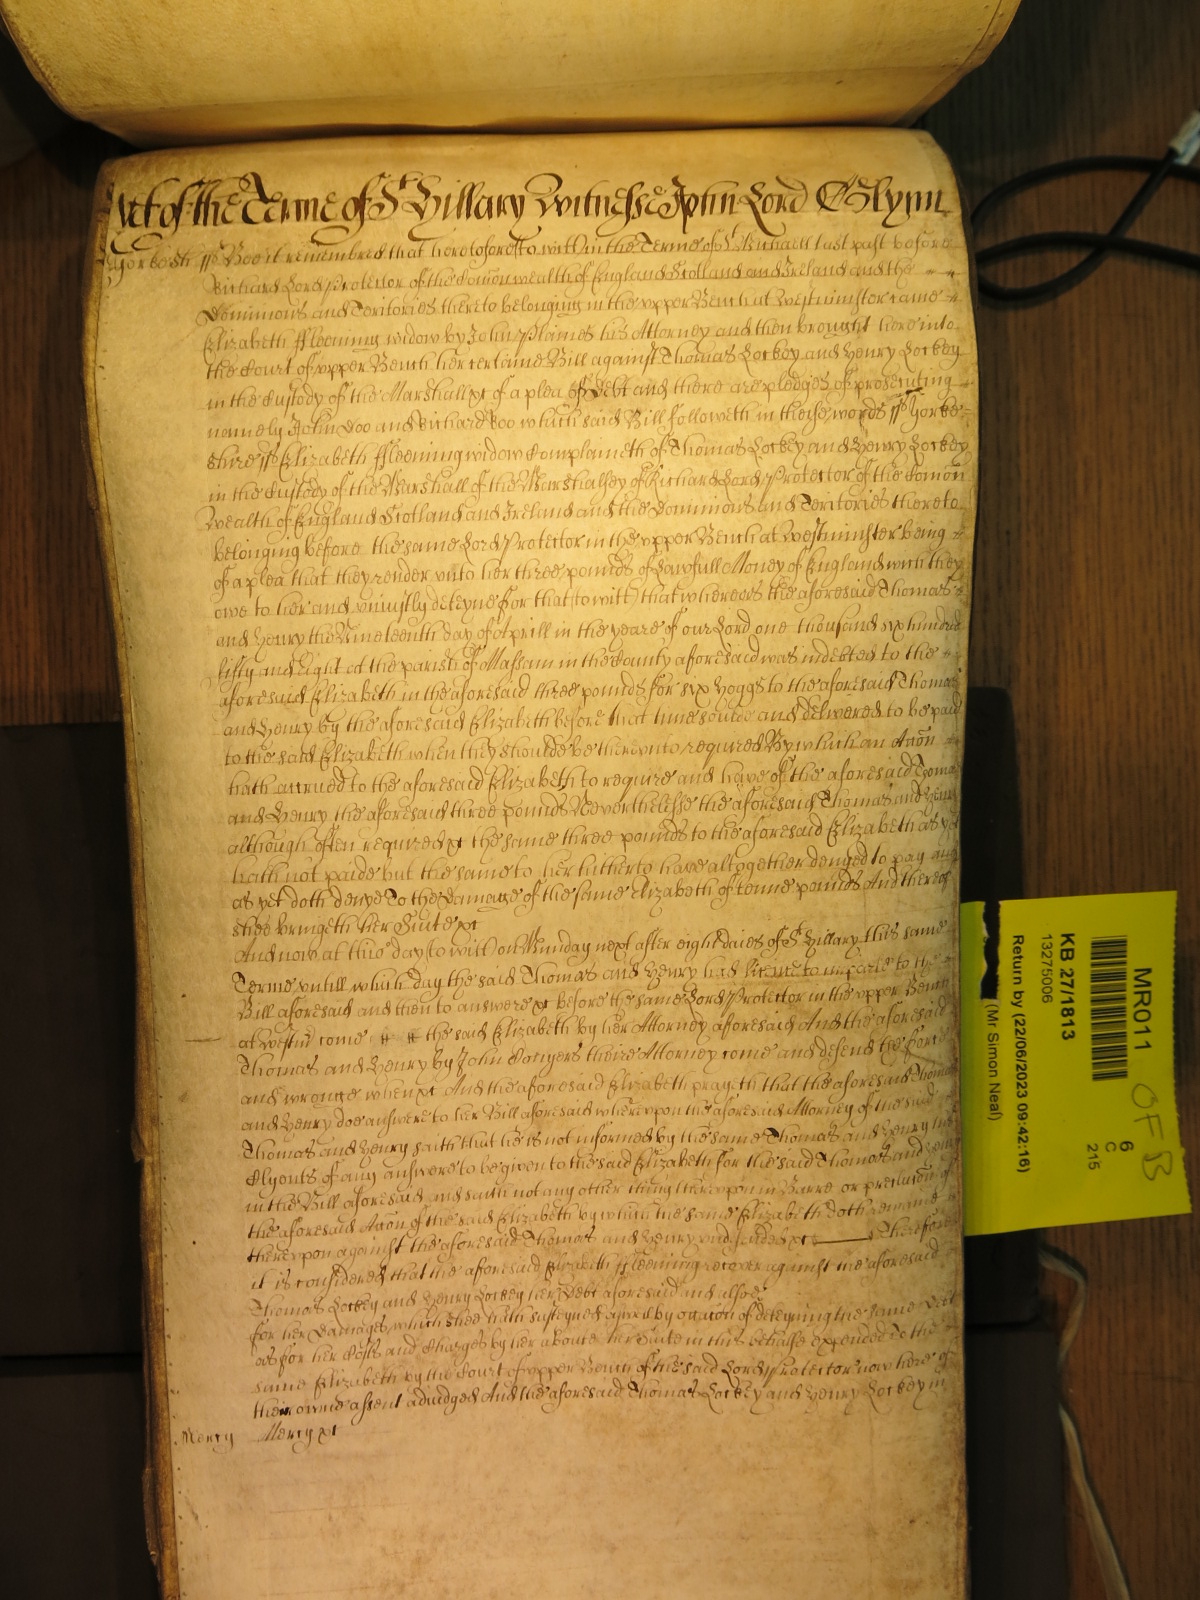 Yet of the Terme of St Hillary Witnesse John Lord Glynn
Yorkesh ss Bee it remembred that heretofore (to witt) in the Terme of St Michaell last past before
Richard Lord Protector of the Comon wealth of England Scotland and Ireland and the
Dominions and Teritories thereto belonging in the upper Bench at Westminster came
Elizabeth ffleeming widow by John Plaines his Attorney and then brought here into
the Court of upper Bench her certaine Bill against Thomas Lockey and Henry Lockey
in the Custody of the Marshall &c of a plea of Debt and there are pledges of prosecuting
namely John Doo and Richard Roo which said Bill followeth in theise words ss Yorke
shire ss Elizabeth ffleeming widow Complaineth of Thomas Lockey and Henry Lockey
in the Custody of the Marshall of the Marshalsey of Richard Lord Protector of the Comon
Wealth of England Scotland and Ireland and the Dominions and Teritories thereto
belonging before the same Lord Protector in the upper Bench at Westminster being
of a plea that they render unto her three pounds of Lawfull Money of England which they
owe to her and uniustly deteyne for that (to witt) that whereas the aforesaid Thomas
and Henry the Nineteenth day of Aprill in the yeare of our Lord one thousand six hundred
fifty and eight at the parish of Massam in the County aforesaid was indebted to the
aforesaid Elizabeth in the aforesaid three pounds for six Hoggs to the aforesaid Thomas
and Henry by the aforesaid Elizabeth before that time sould and delivered to be paid
to the said Elizabeth when they should be thereunto required By which an Accon
hath accrued to the aforesaid Elizabeth to require and have of the aforesaid Thomas
and Henry the aforesaid three pounds Neverthelesse the aforesaid Thomas and Henry
although often required &c the same three pounds to the aforesaid Elizabeth as yet
hath not paide but the same to her hitherto have altogether denyed to pay and
as yet doth denye To the Damage of the same Elizabeth of tenne pounds And thereof
shee bringeth her Suite &c
And now at this day (to witt) on Munday next after eight daies of St Hillary this same
Terme untill which day the said Thomas and Henry had licence to imparle to the
Bill aforesaid and then to answere &c before the same Lord Protector in the upper Bench
at Westmr come the said Elizabeth by her Attorney aforesaid And the aforesaid
Thomas and Henry by John Congers theire Attorney come and defend the force
and wronge when &c And the aforesaid Elizabeth prayeth that the aforesaid Thomas
and Henry doe answere to her Bill aforesaid whereupon the aforesaid Attorney of the said
Thomas and Henry saith that he is not informed by the same Thomas and Henry his
Clyents of any answere to be given to the said Elizabeth for the said Thomas and Henry
in the Bill aforesaid and saith not any other thing thereupon in Barre or preclusion of
the aforesaid Accon of the said Elizabeth by which the same Elizabeth doth remaine
thereupon against the aforesaid Thomas and Henry undefended &c Therefore
it is considered that the aforesaid Elizabeth ffleeming recover against the aforesaid
Thomas Lockey and Henry Lockey her Debt aforesaid and alsoe
for her Damages which shee hath susteyned aswell by occacon of deteyning the same Debt
as for her Costs and Charges by her aboute her Suite in this behalfe expended to the
same Elizabeth by the Court of upper Bench of the said Lord Protector now here of
their owne assent adiudged And the aforesaid Thomas Lockey and Henry Lockey in
Mercy Mercy &c
MR011
KB 27/1813
13275006
Return by (22/06/2023 09:42:16)
(Mr Simon Neal)
6
C
215
OF B